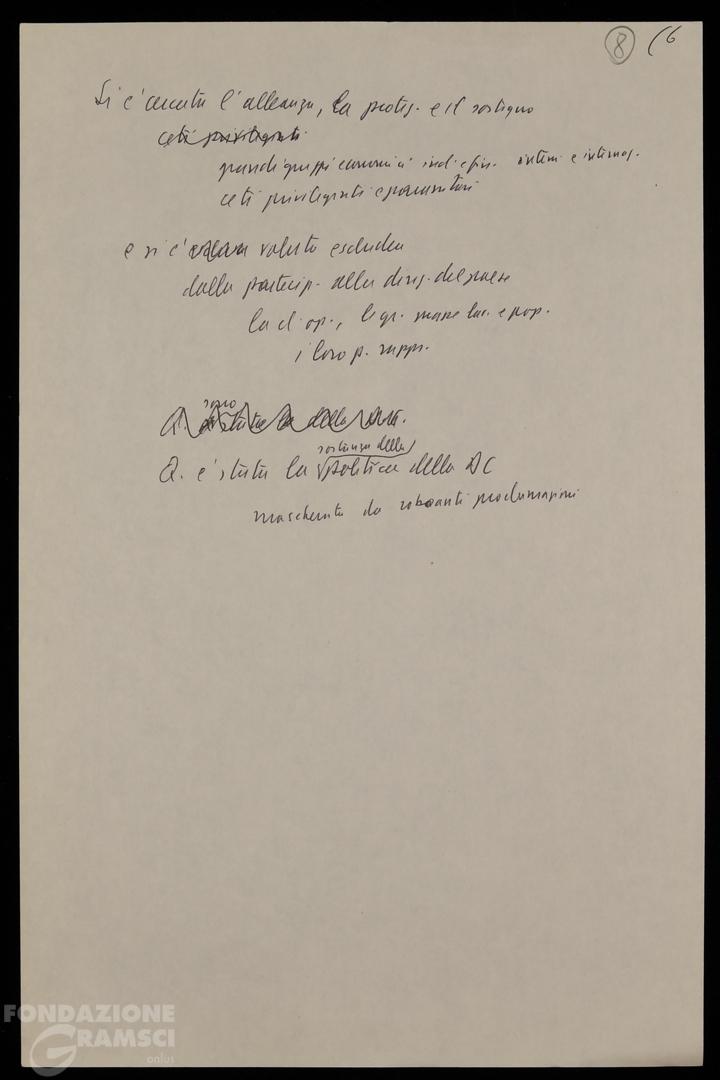 8 (6
Si è cercata l'alleanza, la protez. e il sostegno
ceti privilegiati
grandi gruppi economici ind. e fin. interni e internaz.
ceti privilegiati e parassitari
e si è voluto escludere
dalla partecip. alla direz. del paese
la cl. op., le gr. masse lav. e pop.
i loro p. rappr.
Q. è stata la sostanza della politica della DC
mascherata da roboanti proclamazioni
FONDAZIONE
GRAMSCI
onlus